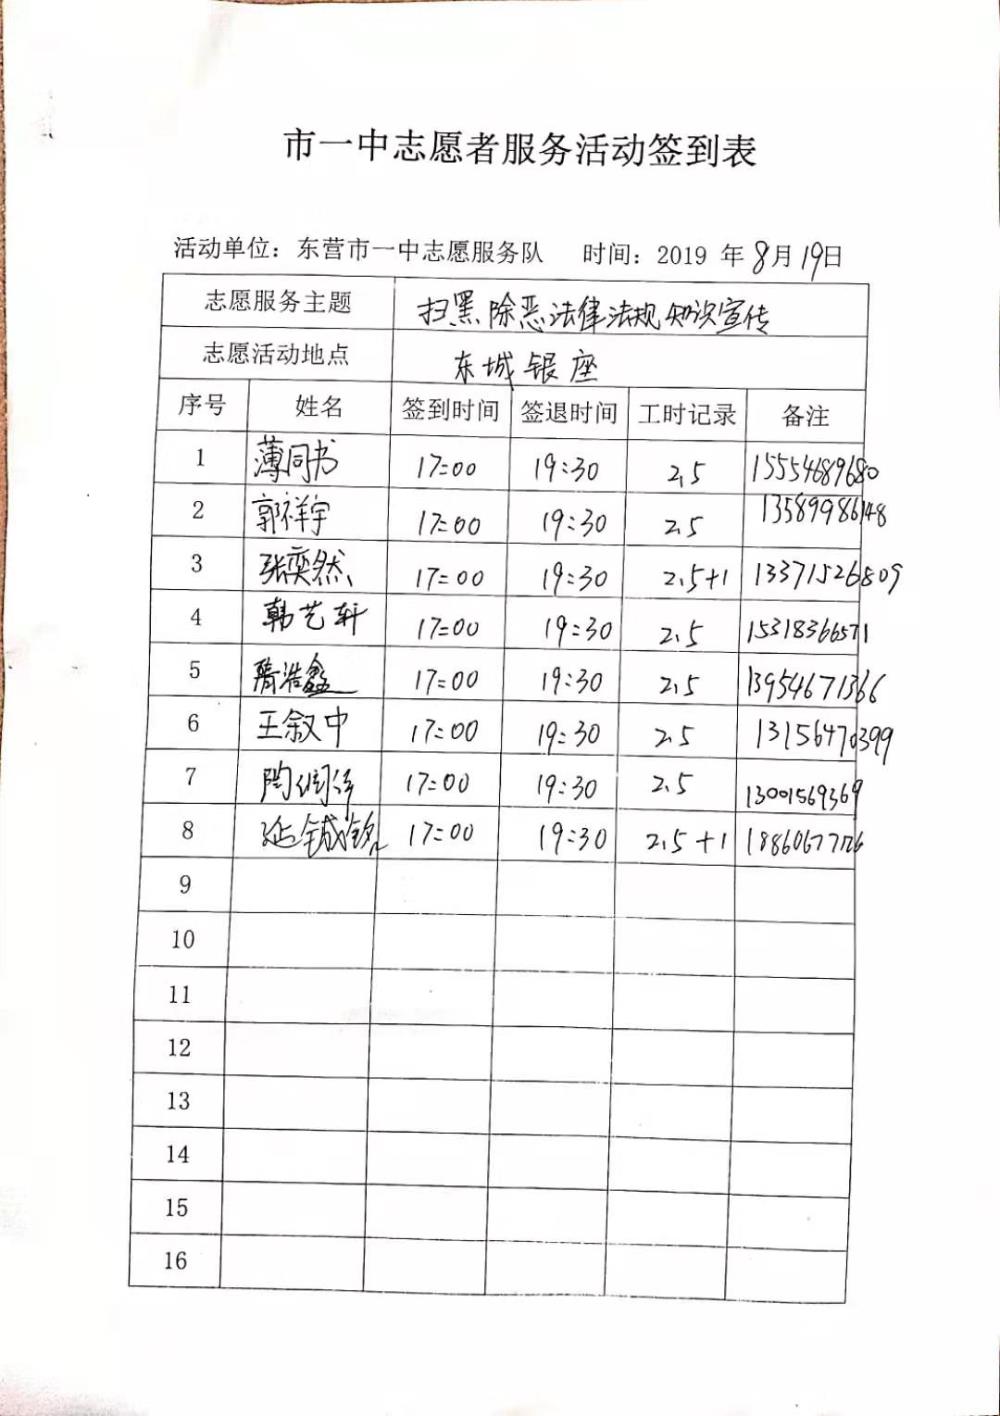 市一中志愿者服务活动签到表
活动单位：东营市一中志愿服务队 时间：2019 年 8月19日
志愿服务主题 扫黑除恶法律法规知识宣传
志愿活动地点 东城银座
序号 姓名 签到时间 签退时间 工时记录 备注
1 薄同书 17:00 19:30 2.5 15554689680
2 郭祥宇 17:00 19:30 2.5 13589986148
3 张奕然 17:00 19:30 2.5+1 13371526809
4 韩艺轩 17:00 19:30 2.5 15318366571
5 隋浩鑫 17:00 19:30 2.5 13954671366
6 王叙中 17:00 19:30 2.5 13156470399
7 17:00 19:30 2.5 13001569369
8 17:00 19:30 2.5+1
9
10
11
12
13
14
15
16